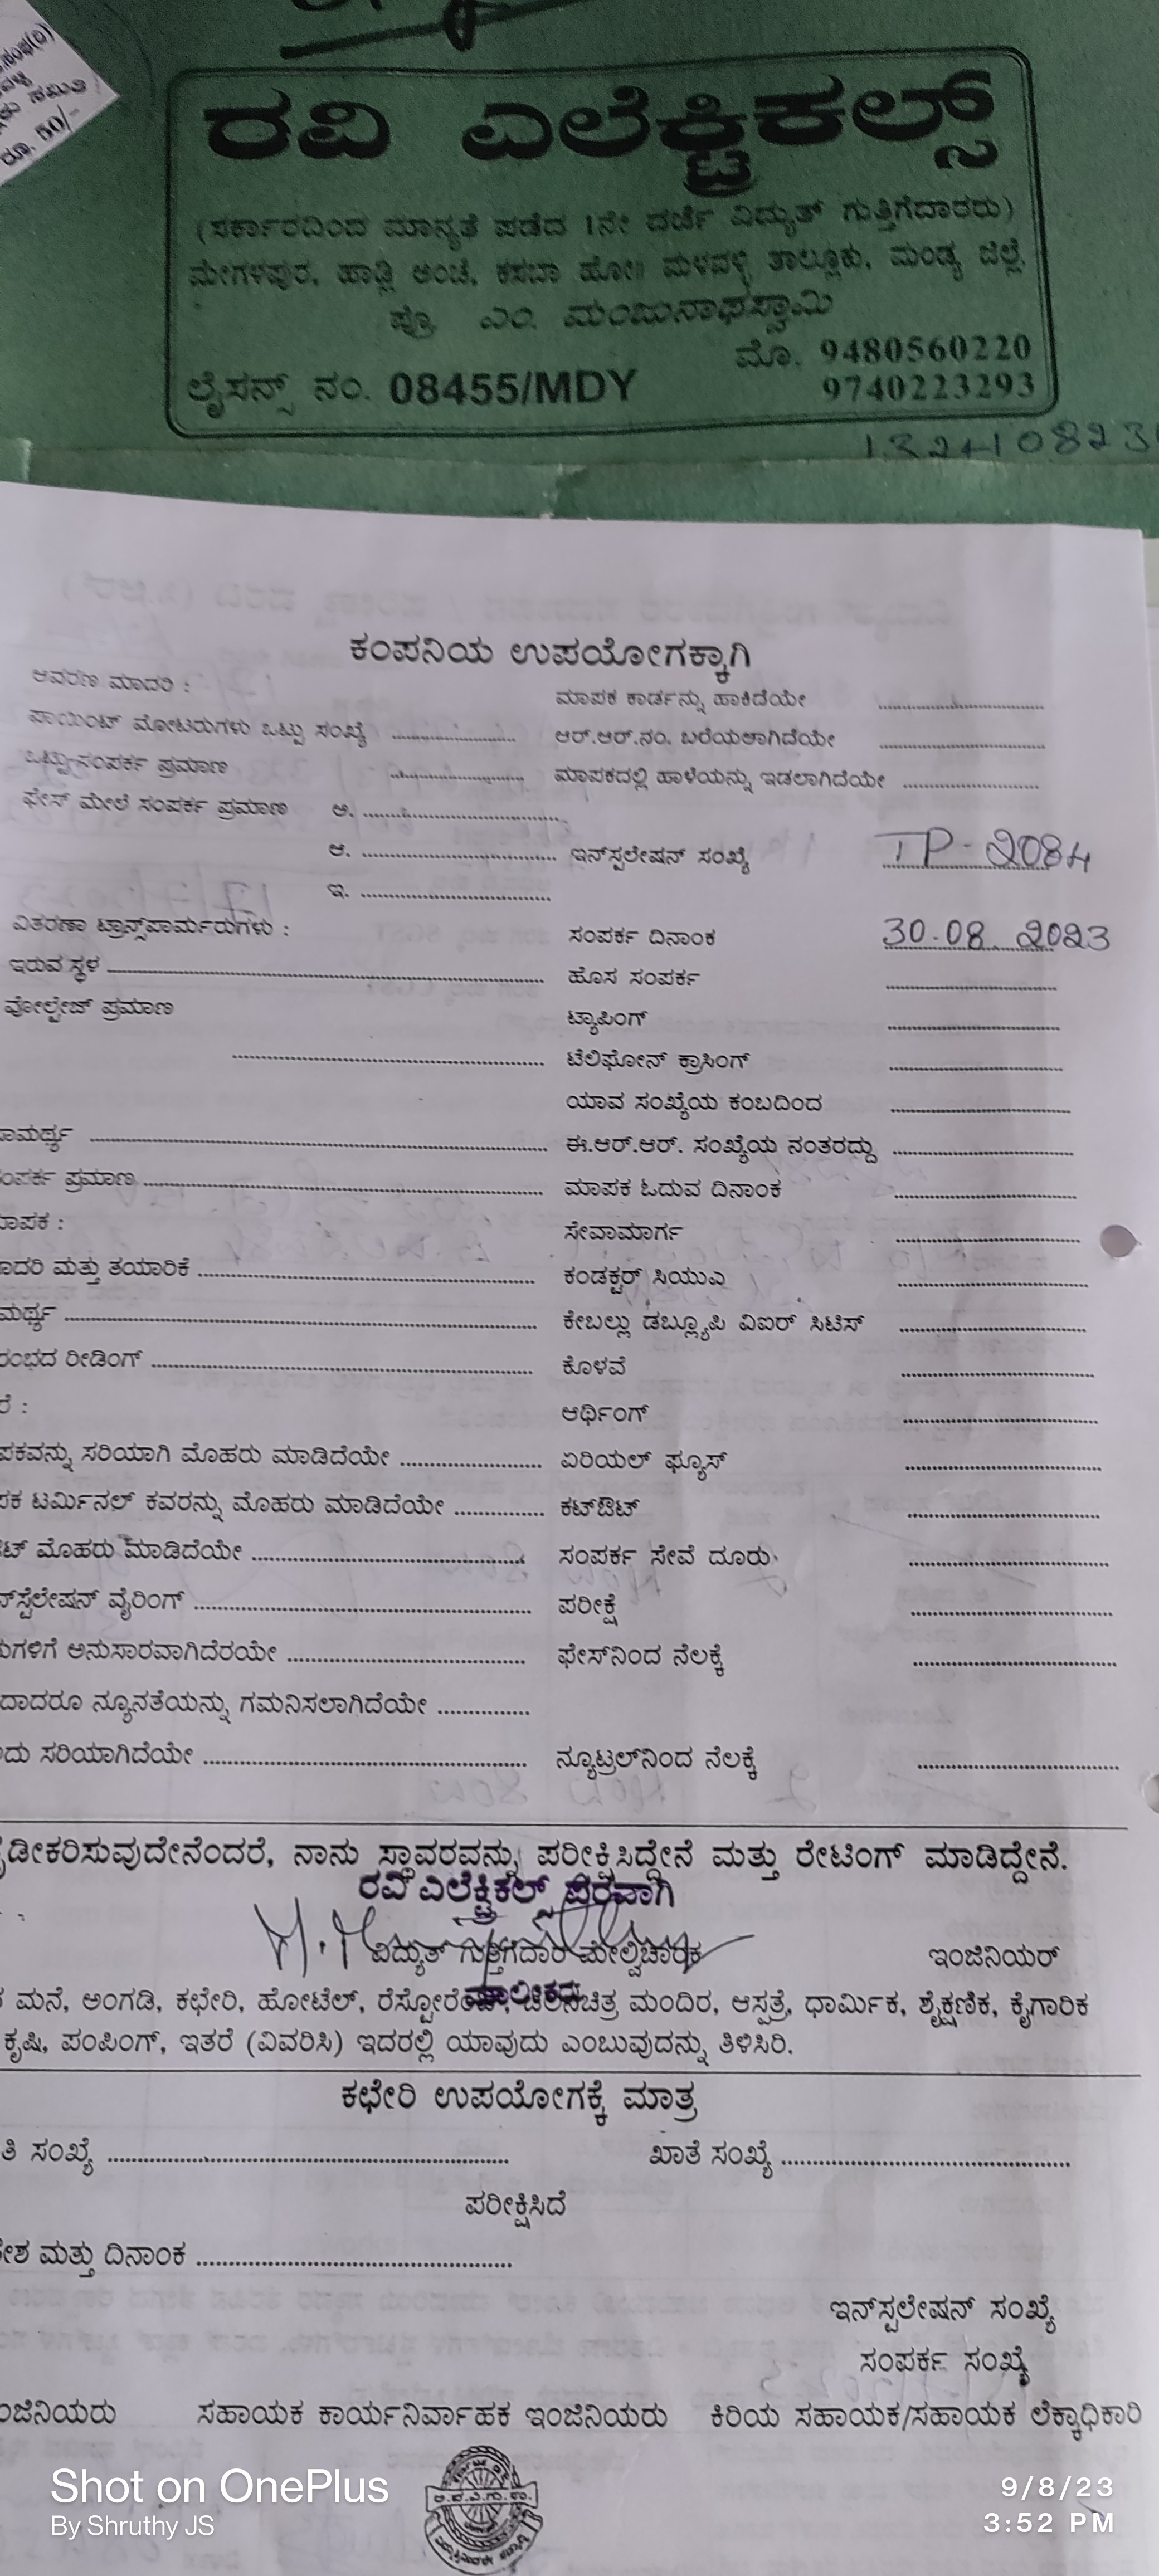 ರೂ. 50/-
ರವಿ ಎಲೆಕ್ಟ್ರಿಕಲ್ಸ್
(ಸರ್ಕಾರದಿಂದ ಮಾನ್ಯತೆ ಪಡೆದ 1ನೇ ದರ್ಜೆ ವಿದ್ಯುತ್ ಗುತ್ತಿಗೆದಾರರು)
ಮೇಗಳಪುರ, ಹಾಡ್ಲಿ ಅಂಚೆ, ಕಸಬಾ ಹೋ॥ ಮಳವಳ್ಳಿ ತಾಲ್ಲೂಕು, ಮಂಡ್ಯ ಜಿಲ್ಲೆ.
ಪ್ರೊ. ಎಂ. ಮಂಜುನಾಥಸ್ವಾಮಿ
ಮೊ. 9480560220
ಲೈಸನ್ಸ್ ನಂ. 08455/MDY 9740223293
ಕಂಪನಿಯ ಉಪಯೋಗಕ್ಕಾಗಿ
ಆವರಣ ಮಾದರಿ : ಮಾಪಕ ಕಾರ್ಡನ್ನು ಹಾಕಿದೆಯೇ ....................
ಪಾಯಿಂಟ್ ಮೋಟರುಗಳು ಒಟ್ಟು ಸಂಖ್ಯೆ .................... ಆರ್.ಆರ್.ನಂ. ಬರೆಯಲಾಗಿದೆಯೇ ....................
ಒಟ್ಟು ಸಂಪರ್ಕ ಪ್ರಮಾಣ .................... ಮಾಪಕದಲ್ಲಿ ಹಾಳೆಯನ್ನು ಇಡಲಾಗಿದೆಯೇ ....................
ಫೇಸ್ ಮೇಲೆ ಸಂಪರ್ಕ ಪ್ರಮಾಣ ಅ. ....................
ಆ. .................... ಇನ್‌ಸ್ಟಲೇಷನ್ ಸಂಖ್ಯೆ TP-2084
ಇ. ....................
ವಿತರಣಾ ಟ್ರಾನ್ಸ್‌ಪಾರ್ಮರುಗಳು : ಸಂಪರ್ಕ ದಿನಾಂಕ 30.08.2023
ಇರುವ ಸ್ಥಳ .................... ಹೊಸ ಸಂಪರ್ಕ ....................
ವೋಲ್ಟೇಜ್ ಪ್ರಮಾಣ ಟ್ಯಾಪಿಂಗ್ ....................
.................... ಟೆಲಿಫೋನ್ ಕ್ರಾಸಿಂಗ್ ....................
ಯಾವ ಸಂಖ್ಯೆಯ ಕಂಬದಿಂದ ....................
.................... ಈ.ಆರ್.ಆರ್. ಸಂಖ್ಯೆಯ ನಂತರದ್ದು ....................
ಪ್ರಮಾಣ .................... ಮಾಪಕ ಓದುವ ದಿನಾಂಕ ....................
ಸೇವಾಮಾರ್ಗ ....................
ಮತ್ತು ತಯಾರಿಕೆ .................... ಕಂಡಕ್ಟರ್ ಸಿಯುಎ ....................
.................... ಕೇಬಲ್ಲು ಡಬ್ಲ್ಯೂಪಿ ವಿಐರ್ ಸಿಟಿಸ್ ....................
ರೀಡಿಂಗ್ .................... ಕೊಳವೆ ....................
ಆರ್ಥಿಂಗ್ ....................
ಸರಿಯಾಗಿ ಮೊಹರು ಮಾಡಿದೆಯೇ .................... ಏರಿಯಲ್ ಫ್ಯೂಸ್ ....................
ಟರ್ಮಿನಲ್ ಕವರನ್ನು ಮೊಹರು ಮಾಡಿದೆಯೇ .................... ಕಟ್‌ಔಟ್ ....................
ಮೊಹರು ಮಾಡಿದೆಯೇ .................... ಸಂಪರ್ಕ ಸೇವೆ ದೂರು ....................
ವೈರಿಂಗ್ .................... ಪರೀಕ್ಷೆ ....................
ಅನುಸಾರವಾಗಿದೆರಯೇ .................... ಫೇಸ್‌ನಿಂದ ನೆಲಕ್ಕೆ ....................
ನ್ಯೂನತೆಯನ್ನು ಗಮನಿಸಲಾಗಿದೆಯೇ ....................
ಸರಿಯಾಗಿದೆಯೇ .................... ನ್ಯೂಟ್ರಲ್‌ನಿಂದ ನೆಲಕ್ಕೆ ....................
ನಾನು ಸ್ಥಾವರವನ್ನು ಪರೀಕ್ಷಿಸಿದ್ದೇನೆ ಮತ್ತು ರೇಟಿಂಗ್ ಮಾಡಿದ್ದೇನೆ.
ರವಿ ಎಲೆಕ್ಟ್ರಿಕಲ್ಸ್ ಪರವಾಗಿ
ವಿದ್ಯುತ್ ಗುತ್ತಿಗೆದಾರ ಮೇಲ್ವಿಚಾರಕ ಇಂಜಿನಿಯರ್
ಮಾಲೀಕರು
ಮನೆ, ಅಂಗಡಿ, ಕಛೇರಿ, ಹೋಟೆಲ್, ರೆಸ್ಟೋರೆಂಟ್, ಚಲನಚಿತ್ರ ಮಂದಿರ, ಆಸ್ಪತ್ರೆ, ಧಾರ್ಮಿಕ, ಶೈಕ್ಷಣಿಕ, ಕೈಗಾರಿಕ
ಕೃಷಿ, ಪಂಪಿಂಗ್, ಇತರೆ (ವಿವರಿಸಿ) ಇದರಲ್ಲಿ ಯಾವುದು ಎಂಬುವುದನ್ನು ತಿಳಿಸಿರಿ.
ಕಛೇರಿ ಉಪಯೋಗಕ್ಕೆ ಮಾತ್ರ
ಸಂಖ್ಯೆ .................... ಖಾತೆ ಸಂಖ್ಯೆ ....................
ಪರೀಕ್ಷಿಸಿದೆ
ಮತ್ತು ದಿನಾಂಕ ....................
ಇನ್‌ಸ್ಟಲೇಷನ್ ಸಂಖ್ಯೆ
ಸಂಪರ್ಕ ಸಂಖ್ಯೆ
ಸಹಾಯಕ ಕಾರ್ಯನಿರ್ವಾಹಕ ಇಂಜಿನಿಯರು ಕಿರಿಯ ಸಹಾಯಕ/ಸಹಾಯಕ ಲೆಕ್ಕಾಧಿಕಾರಿ
Shot on OnePlus
By Shruthy JS
9/8/23
3:52 PM